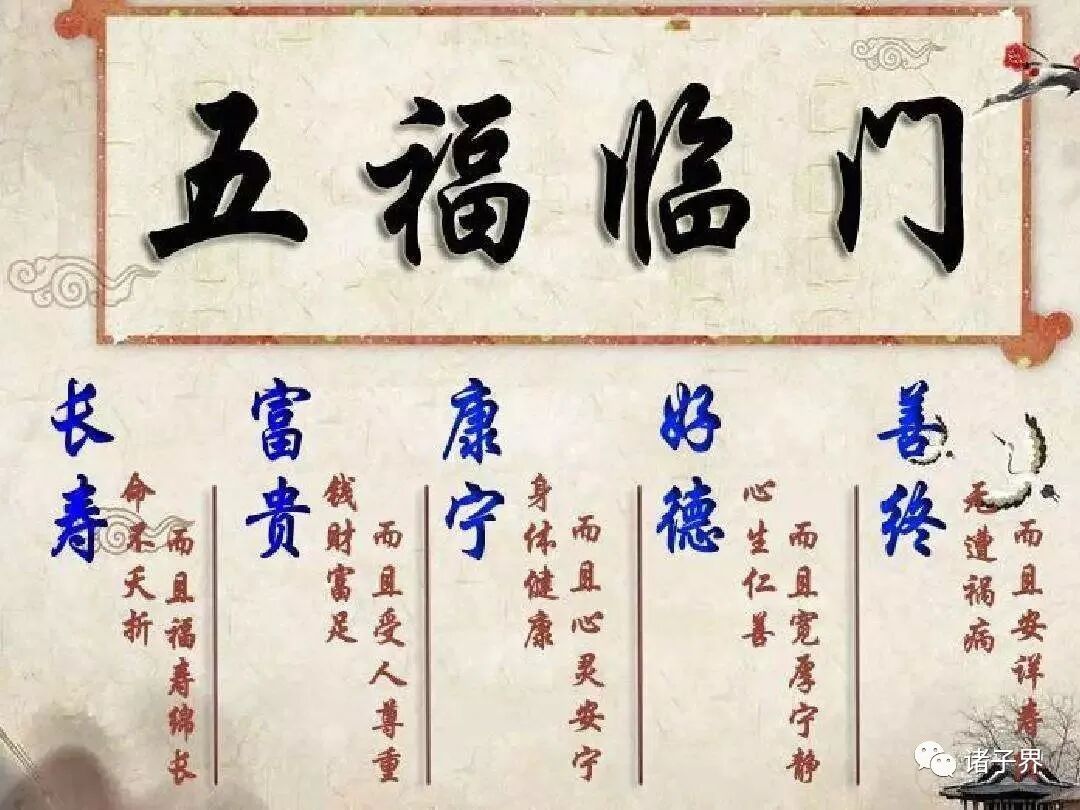 五福临门
长寿
命不夭折
而且福寿绵长
富贵
钱财富足
而且受人尊重
康宁
身体健康
而且心灵安宁
好德
心生仁善
而且宽厚宁静
善终
无遭祸病
而且安详寿
诸子界